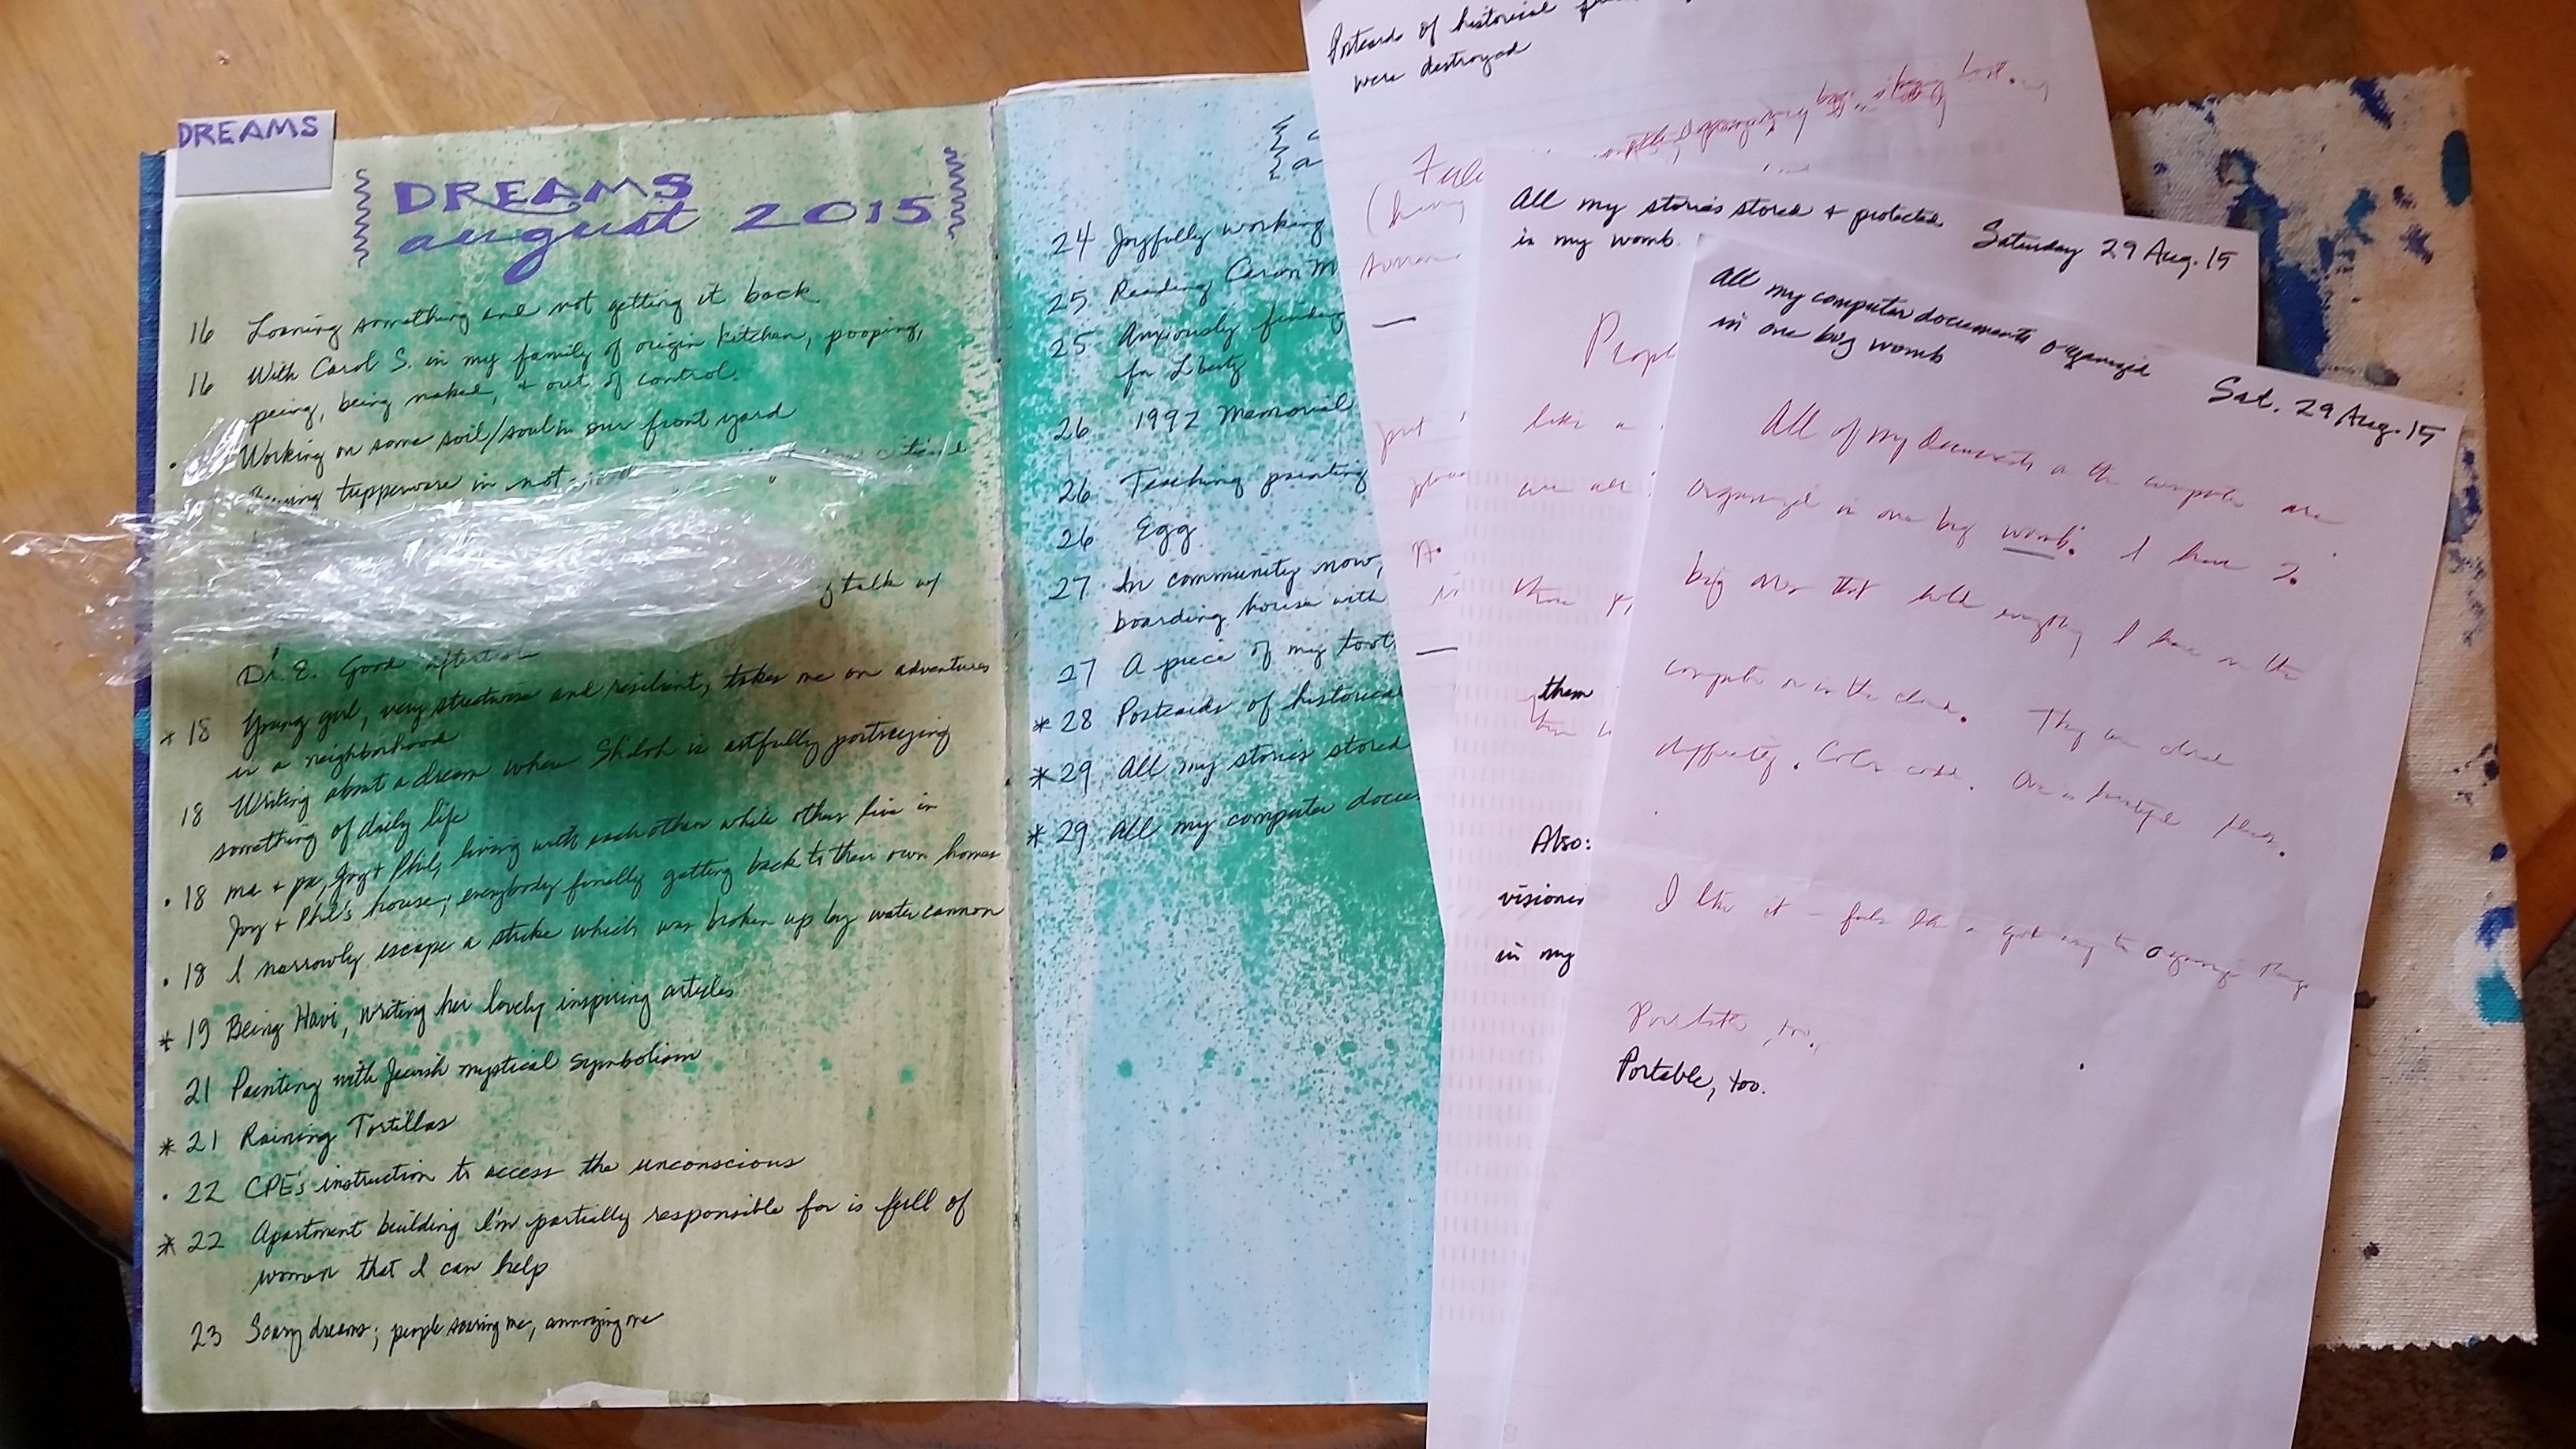 DREAMS
DREAMS
august 2015
16 Loaning something and not getting it back
16 With Carol S. in my family of origin kitchen, pooping,
peeing, being naked, + out of control.
• Working on some soil/soul in our front yard
tupperware in not
talk w/
Dr. E. Good
* 18 Young girl, very streetwise and resilient, takes me on adventures
in a neighborhood
18 Writing about a dream where Shiloh is artfully portraying
something of daily life
• 18 ma + pa, Joy + Phil, living with each other while others live in
Joy + Phil's house; everybody finally getting back to their own homes
• 18 I narrowly escape a strike which was broken up by water cannon
* 19 Being Havi, writing her lovely inspiring articles
21 Painting with Jewish mystical symbolism
* 21 Raining Tortillas
• 22 CPE's instruction to access the unconscious
* 22 Apartment building I'm partially responsible for is full of
women that I can help
23 Scary dreams; people scaring me, annoying me
24 Joyfully working
25 Reading Caron M
25 Anxiously finding
for Liberty
26 1992 Memorial
26 Teaching painting
26 Egg
27 In community now,
boarding house with
27 A piece of my toot
* 28 Postcards of historical
* 29 All my stories stored
* 29 All my computer docu
Postcards of historical
were destroyed
being lost.
All my stories stored + protected
in my womb.
Saturday 29 Aug. 15
Peopl
like a
are all
them
Also:
visioni
in my
All my computer documents organized
in one big womb
Sat. 29 Aug. 15
All of my documents on the computer are
organized in one big womb. I have 2
big ones that hold everything I have on the
computer or in the cloud. They are closed
differently. Color code. One is
I like it – feels like a good way to organize things
Portable, too.
Portable, too.